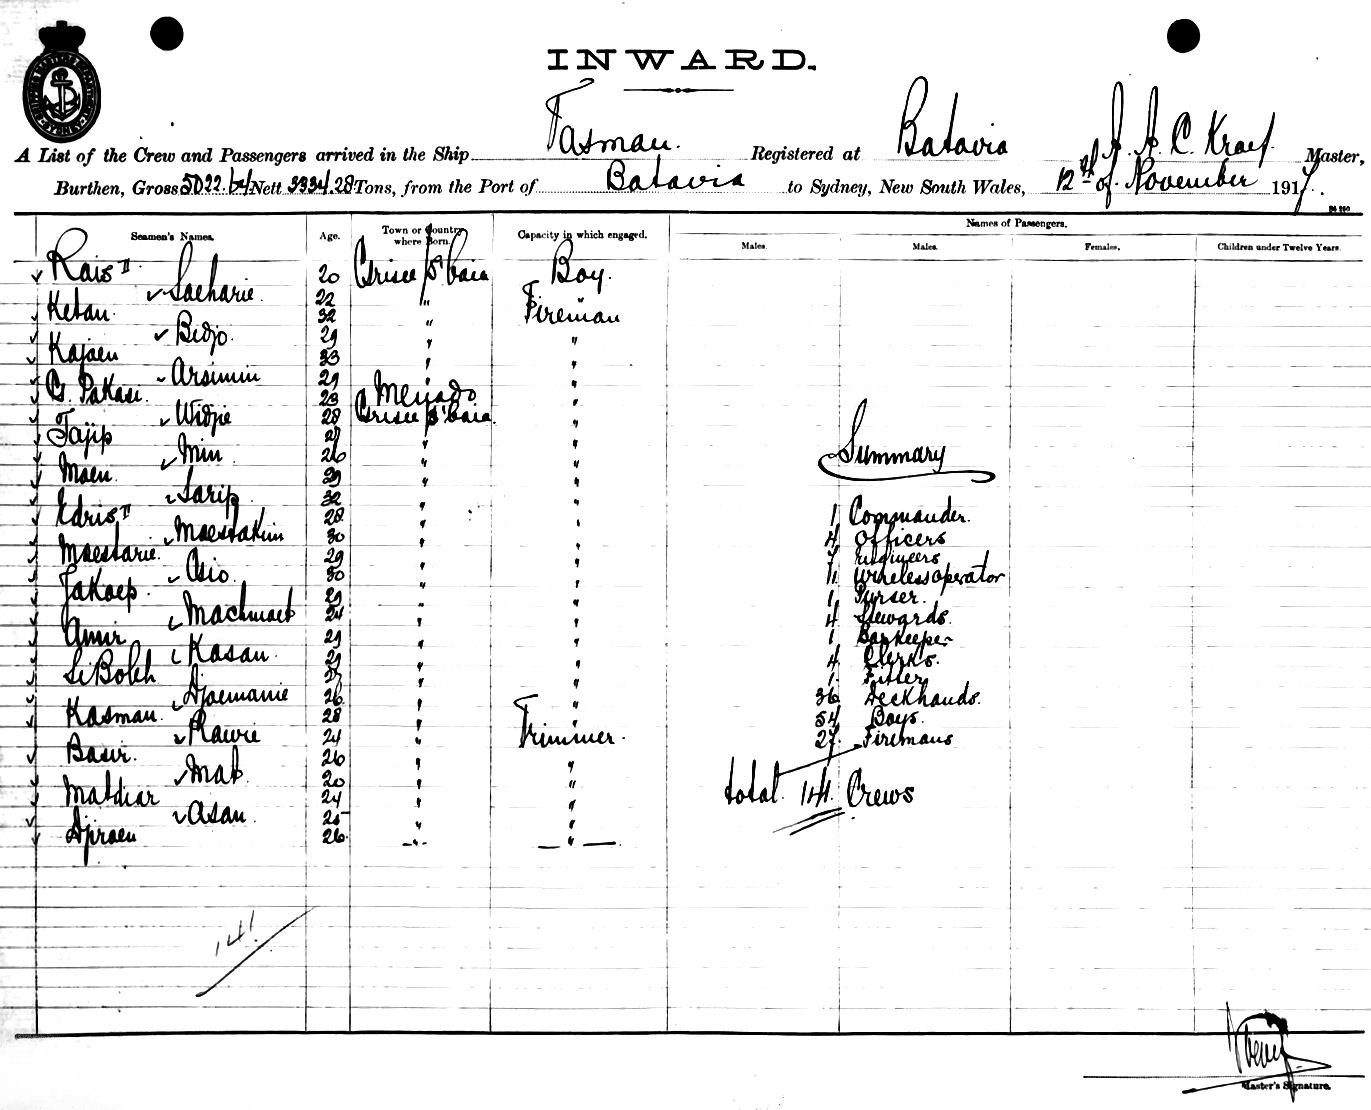 INWARD.
A List of the Crew and Passengers arrived in the Ship Tasman. Registered at Batavia J. A. C. Kraef Master,
Burthen, Gross 5022.64 Nett 3334.28 Tons, from the Port of Batavia to Sydney, New South Wales, 12th of November 1917.
Seamen's Names. Age. Town or Country where Born. Capacity in which engaged. Names of Passengers.
Males. Males. Females. Children under Twelve Years.
Rais II 20 Grisee/S'baia Boy.
Sacharie. 22 "
Ketan. 32 " Fireman
Bidjo. 29 " "
Kajaen 33 " "
Arsimin 29 " "
G. Pakasi. 23 Menado "
Widjie 28 Grisee/S'baia. "
Tajip 27 " "
Min 26 " "
Moen. 39 " "
Sarip 32 " "
Edris II 28 " "
Maestakim 30 " "
Maestarie. 29 " "
Osio. 30 " "
Jakaep 29 " "
Machmoet 24 " "
Amir 29 " "
Kasan. 29 " "
Si Boleh 27 " "
Djoemanie 26 " "
Kasman. 28 " "
Rawie 24 " Trimmer.
Basir. 26 " "
Mat 20 " "
Matdiar 24 " "
Asan. 25 " "
Djraen 26. " "
Summary
1 Commander.
4 Officers
7 Engineers
1 Wireless operator
1. Purser.
4 Stewards.
1 Barkeeper
4 Clerks.
1. Fitter
36 Deckhands.
54 Boys.
27. Firemans
total 141. Crews
141.
Master's Signature.